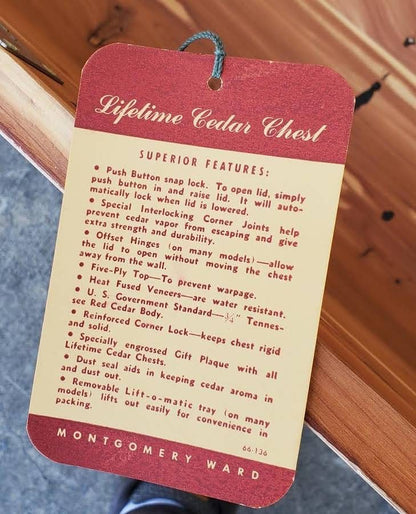 Lifetime Cedar Chest
SUPERIOR FEATURES:
• Push Button snap lock. To open lid, simply
push button in and raise lid. It will auto-
matically lock when lid is lowered.
• Special Interlocking Corner Joints help
prevent cedar vapor from escaping and give
extra strength and durability.
• Offset Hinges (on many models)—allow
the lid to open without moving the chest
away from the wall.
• Five-Ply Top—To prevent warpage.
• Heat Fused Veneers—are water resistant.
• U. S. Government Standard—¾" Tennes-
see Red Cedar Body.
• Reinforced Corner Lock—keeps chest rigid
and solid.
• Specially engrossed Gift Plaque with all
Lifetime Cedar Chests.
• Dust seal aids in keeping cedar aroma in
and dust out.
• Removable Lift-o-matic tray (on many
models) lifts out easily for convenience in
packing.
66-136
MONTGOMERY WARD